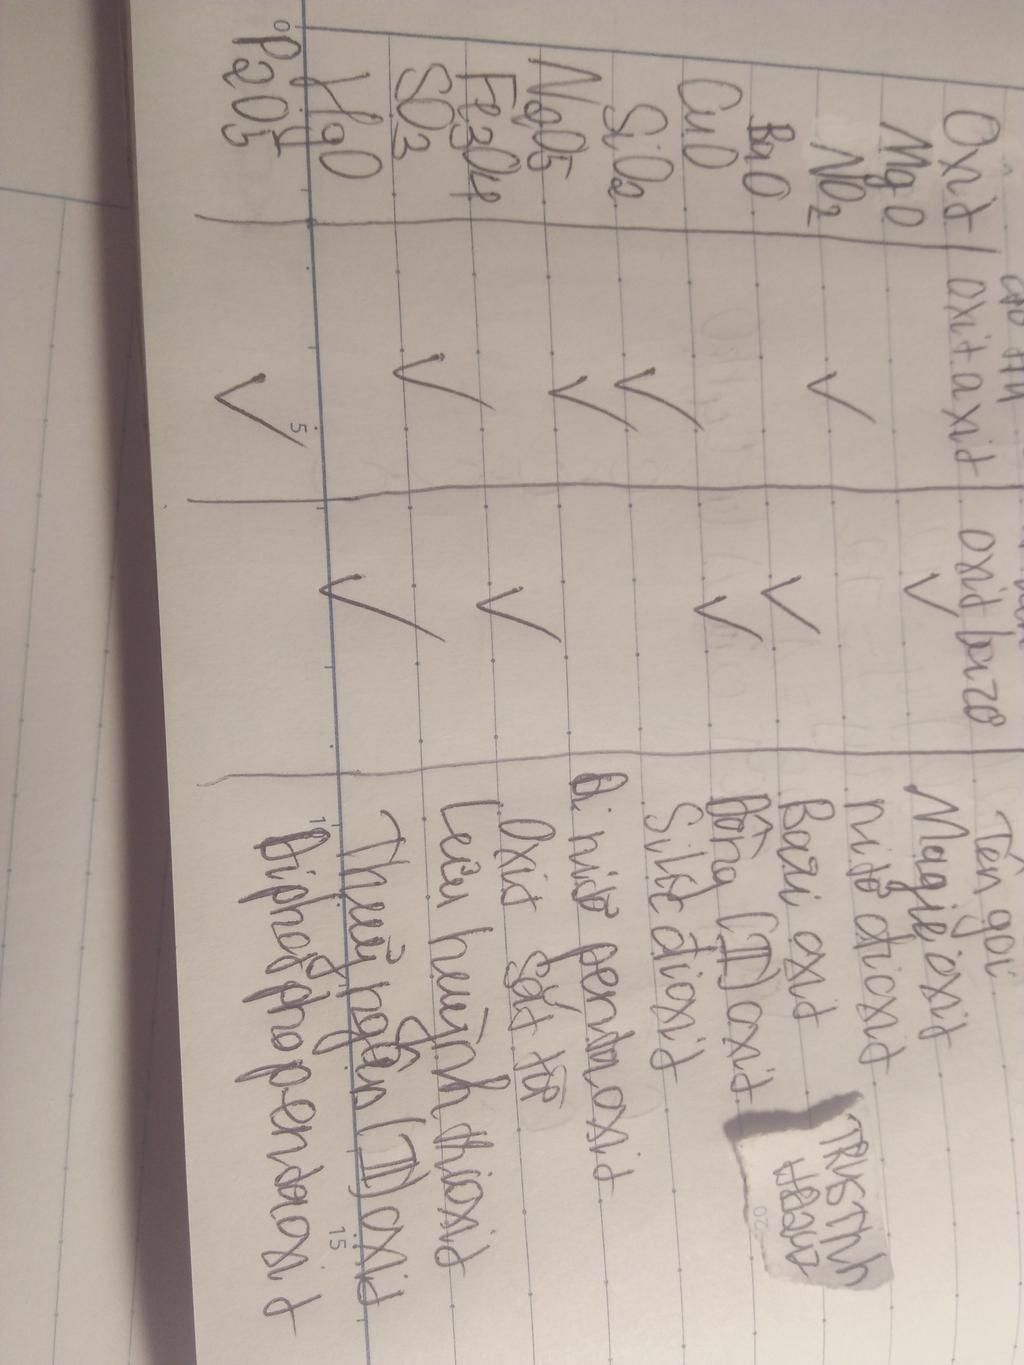 Oxit/ oxit axit oxit bazo Tên gọi
MgO Magie oxit
NO2 nitơ đioxit
BaO Bari oxit
CuO Đồng (II) oxit
SiO2 Silic đioxit
N2O5 Đi nitơ pentaoxit
Fe3O4 Oxit sắt từ
SO3 Lưu huỳnh trioxit
HgO Thuỷ ngân (II) oxit
P2O5 Điphotphopentaoxit
5
10
15
20